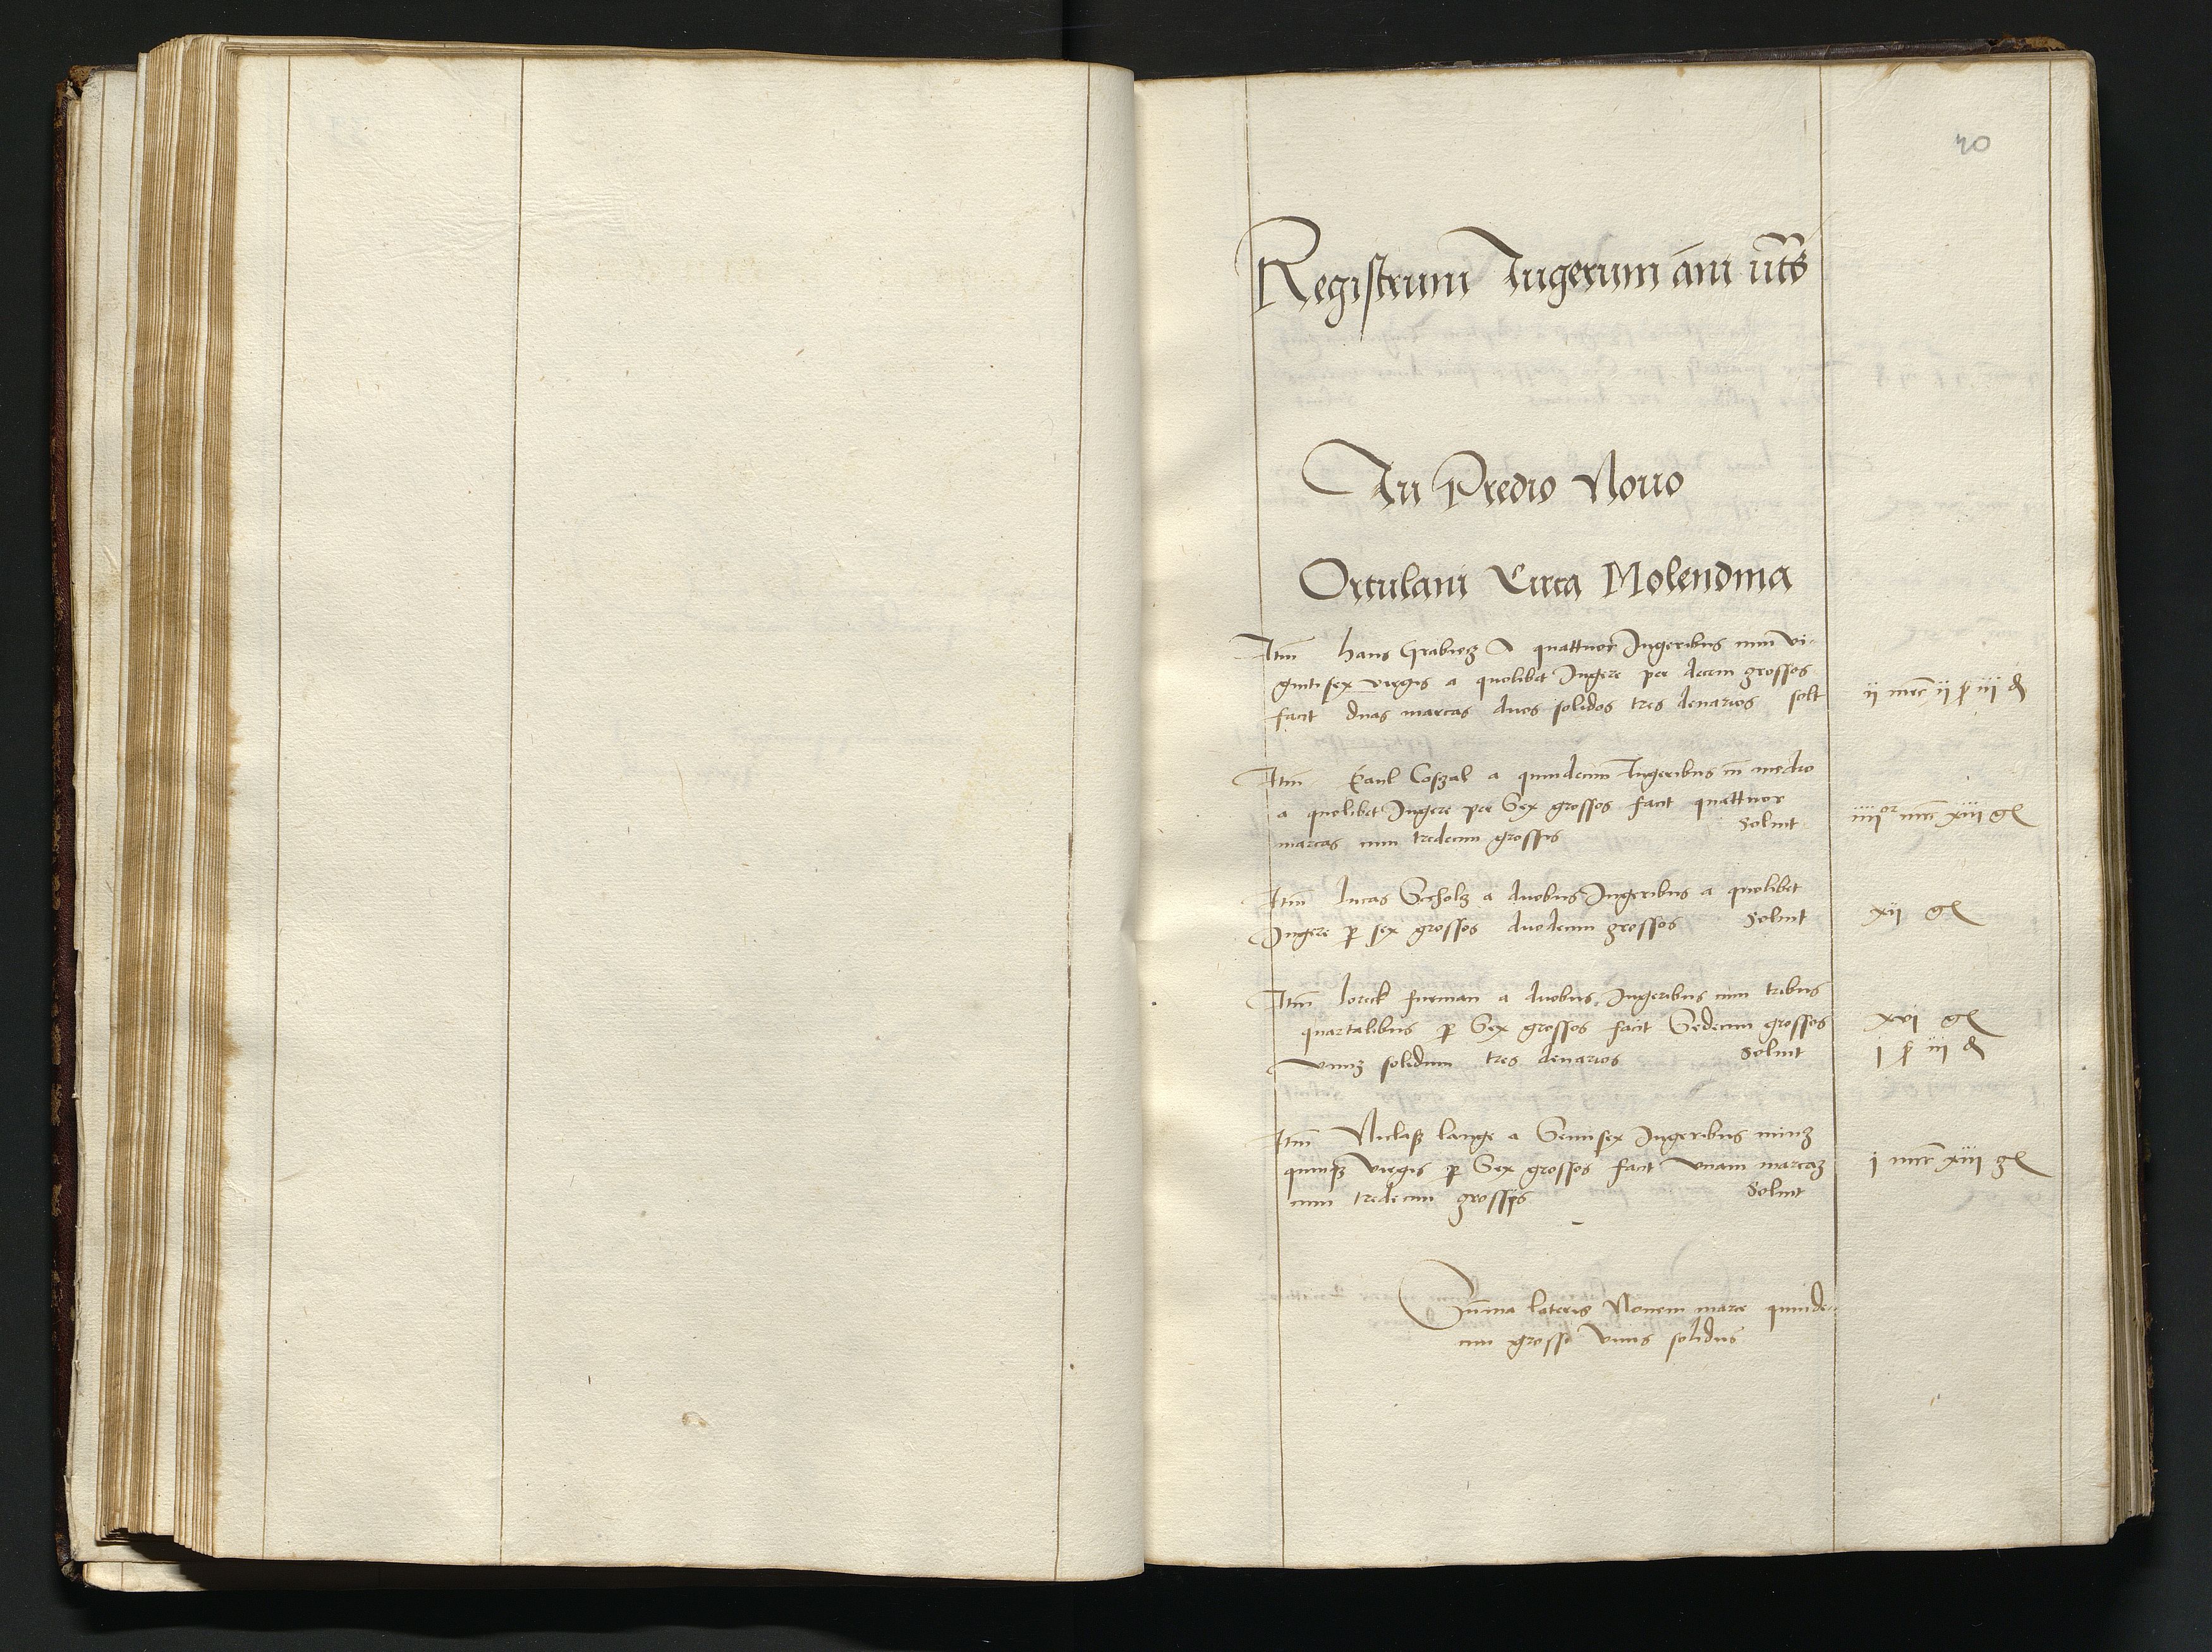 40
Registrum Iugerum āni ut s̄
In Predio Nouo
Ortulani Circa Molendina
Itm̄ hans Grabicz A quattuor Iugeribus cum vi-
ginti sex virgis a quolibet Iugere per decem grossos
facit duas marcas duos solidos tres denarios solt
ii mrc̄ ii ſ iii ₰
Itm̄ Paul Coszal a quindecim Iugeribus cū medio
a quolibet Iugere per Sex grossos facit quattuor
marcas cum tredecim grossis Soluit
iiii or mrc̄ xiii gͬ
Itm̄ lucas Scholz a duobus Iugeribus a quolibet
Iugere ꝑ sex grossos duodecim grossos Soluit
xii gͬ
Itm̄ lorek furman a duobus Iugeribus cum tribus
quartalibus ꝑ Sex grossos facit Sedecim grossos
vnuʒ solidum tres denarios Soluit
xvi gͬ
i ſ iii ₰
Itm̄ Niclaß lange a Semisex Iugeribus minʒ
quinqʒ virgis ꝑ Sex grossos facit vnam marcaʒ
cum tredecim grossis Soluit
i mrc̄ xiii gͬ
Sūma lateris Nouem marce quinde-
cim grossi vnus solidus